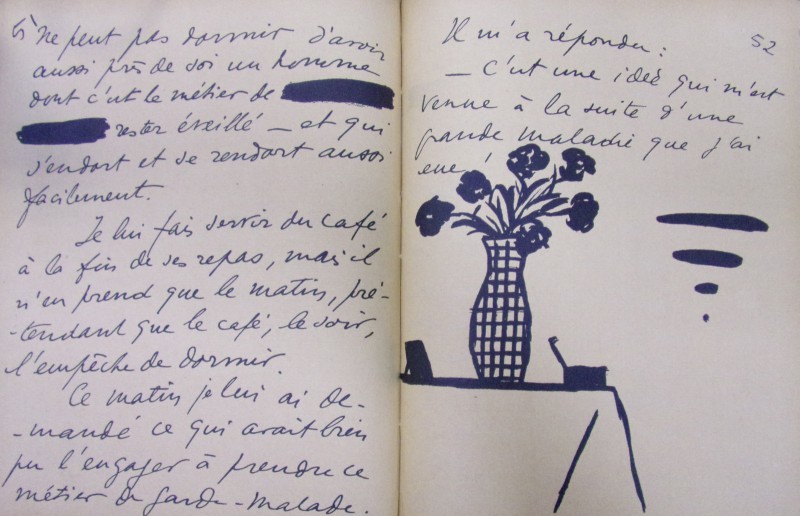 ne peut pas dormir d'avoir
aussi près de soi un homme
dont c'est le métier de
rester éveillé – et qui
s'endort et se rendort aussi
facilement.
Je lui fais servir du café
à la fin de ses repas, mais il
n'en prend que le matin, pré-
-tendant que le café, le soir,
l'empêche de dormir.
Ce matin je lui ai de-
-mandé ce qui avait bien
pu l'engager à prendre ce
métier de garde-malade.
Il m'a répondu :
52
– C'est une idée qui m'est
venue à la suite d'une
grande maladie que j'ai
eue !